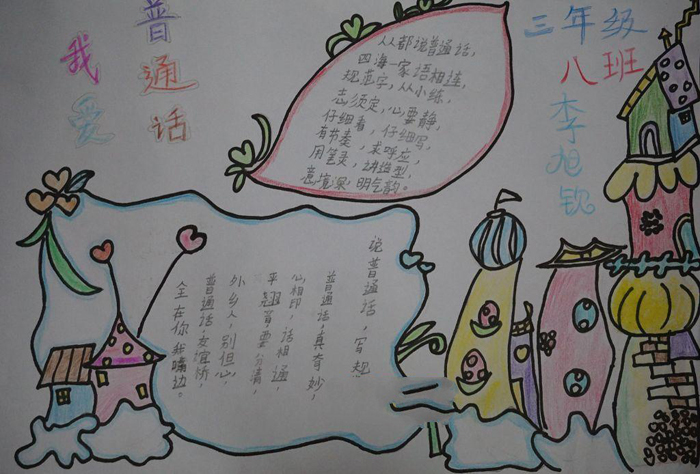 我爱
普通话
三年级
八班
李旭钦
人人都说普通话，
四海一家语相连，
规范字，从小练，
志须定，心要静，
仔细看，仔细写，
有节奏，求呼应，
用笔灵，讲造型，
意境深，明气韵。
说普通话，写规
普通话，真奇妙，
心相印，话相通，
平翘音要分清，
外乡人，别但心，
普通话友谊桥，
全在你我嘴边。